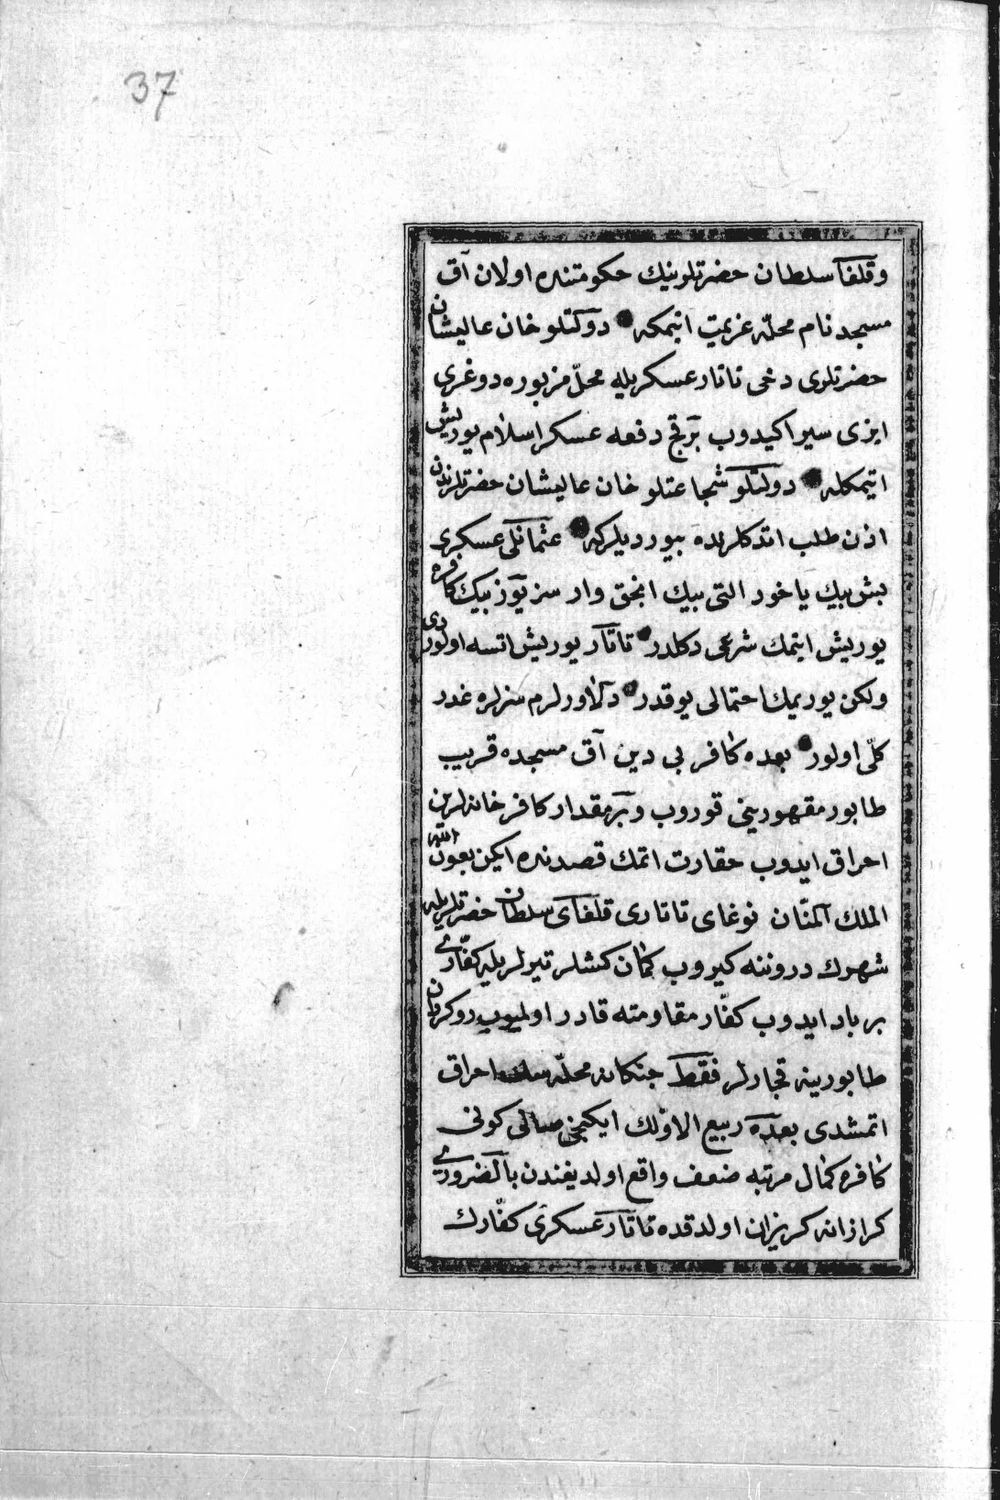 37
وقلفا سلطان حضرتلرینك حكومتنده اولان آق
مسجد نام محلّه عزیمت اتیمكه دولتلو خان عالیشان
حضرتلری دخی تاتار عسكریله محلّ مزبوره دوغری
ایزی سیرا كیدوب برقچ دفعه عسكر اسلام یوریش
اتیمكله دولتلو شجاعتلو خان عالیشان حضرتلرندن
اذن طلب اتدكلرنده بیوردیلركه عثمانلی عسكری
بش بیك یاخود التی بیك انجق وار سز یوز بیك كافره
یوریش ایتمك شرعی دكلدر تاتار یوریش اتسه اولوردی
ولكن یوریمك احتمالی یوقدر دلاورلرم سزلره غدر
كلّی اولور بعده كافر بی دین آق مسجده قریب
طابور مقهورینی قوروب وبر مقدار كافر خانه لرین
احراق ایدوب حقارت اتمك قصدنده ایكن بعون الله
الملك المنّان نوغای تاتاری قلفای سلطان حضرتلریله
شهرك دروننه كیروب كمان كشلر تیرلریله كفّاری
برباد ایدوب كفّار مقاومته قادر اولمیوب روكردان
طابورینه قچارلر فقط جنكانه محلّه احراق
اتمشدی بعده ربیع الاوّلك ایكنجی صالی كونی
كافره كمال مرتبه ضعف واقع اولدیغندن بالضروری
كرازانه كریزان اولدقده تاتار عسكری كفّارك